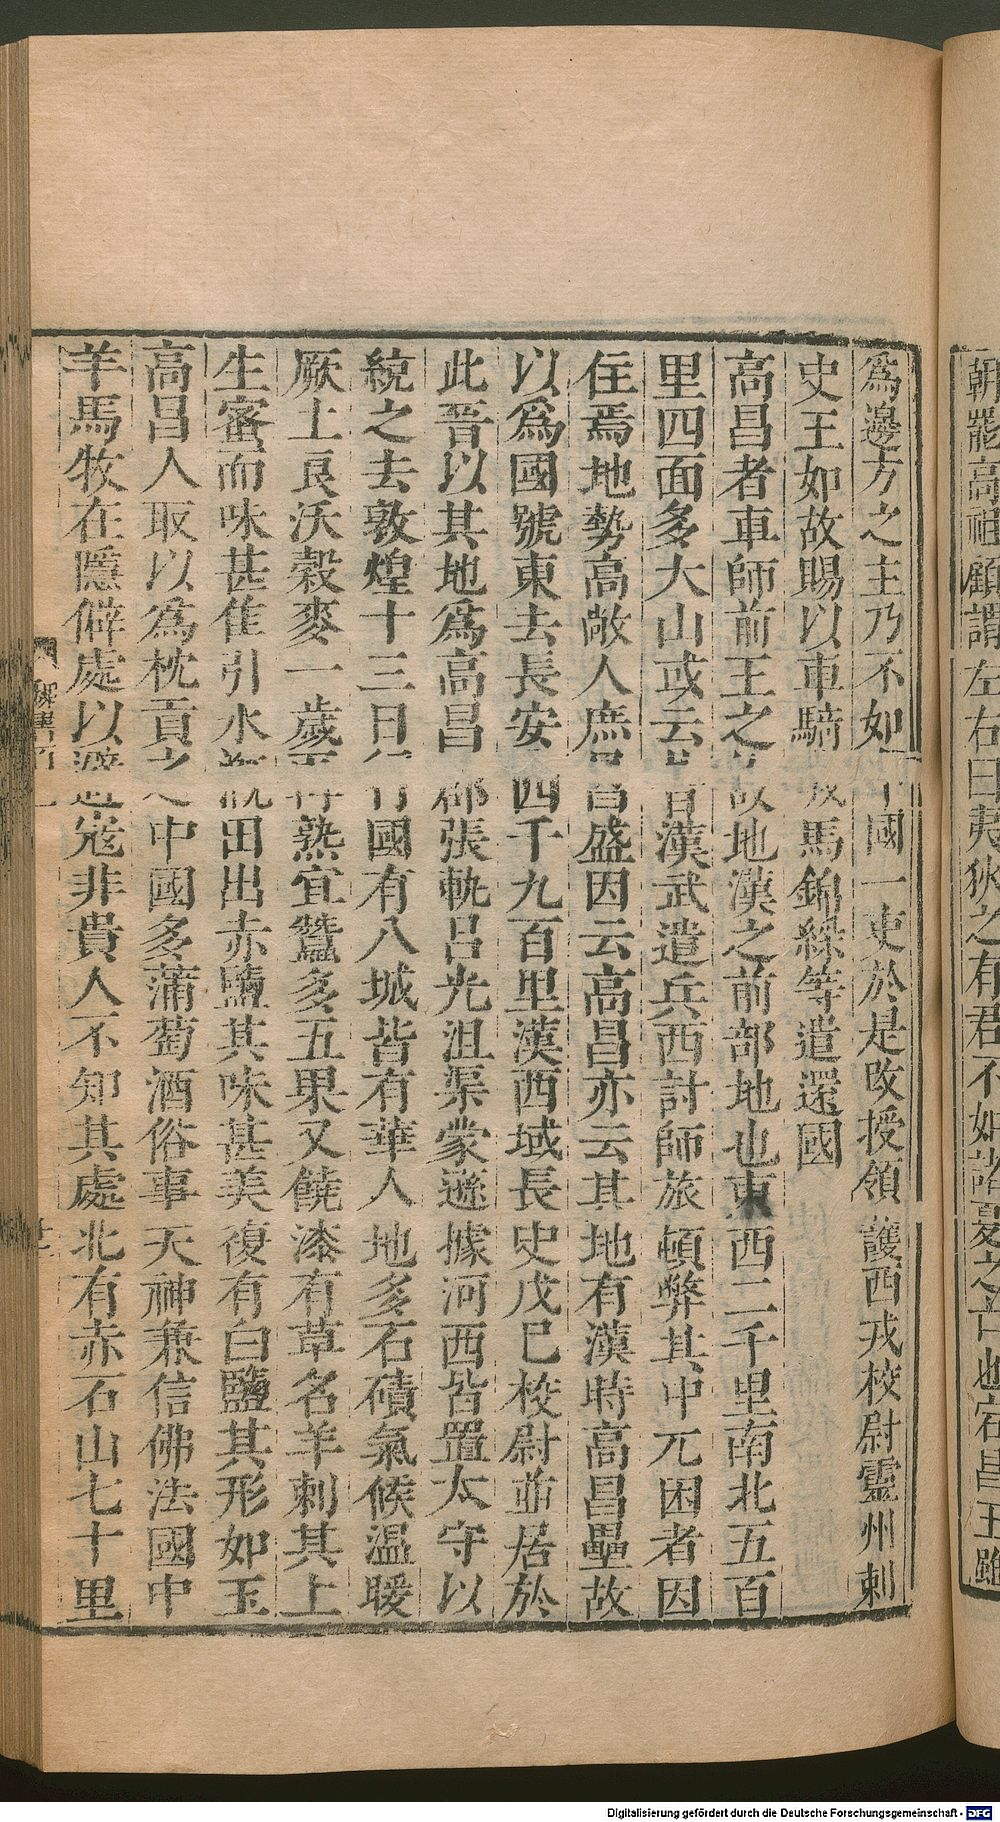 朝罷高祖顧謂左右曰夷狄之有君不如諸夏之亡也宕昌王雖
爲邊方之主乃不如中國一吏於是改授領護西戎校尉靈州刺
史王如故賜以車騎戎馬錦綵等遣還國
高昌者車師前王之故地漢之前部地也東西二千里南北五百
里四面多大山或云昔漢武遣兵西討師旅頓弊其中尤困者因
住焉地勢高敞人庶昌盛因云高昌亦云其地有漢時高昌壘故
以爲國號東去長安四千九百里漢西域長史戊巳校尉並居於
此晉以其地爲高昌郡張軌呂光沮渠蒙遜據河西皆置太守以
統之去敦煌十三日行國有八城皆有華人地多石磧氣候温暖
厥土良沃穀麥一歲再熟宜蠶多五果又饒漆有草名羊刺其上
生蜜而味甚佳引水溉田出赤鹽其味甚美復有白鹽其形如玉
高昌人取以爲枕貢之中國多蒲萄酒俗事天神兼信佛法國中
羊馬牧在隱僻處以避寇非貴人不知其處北有赤石山七十里
Digitalisierung gefördert durch die Deutsche Forschungsgemeinschaft - DFG